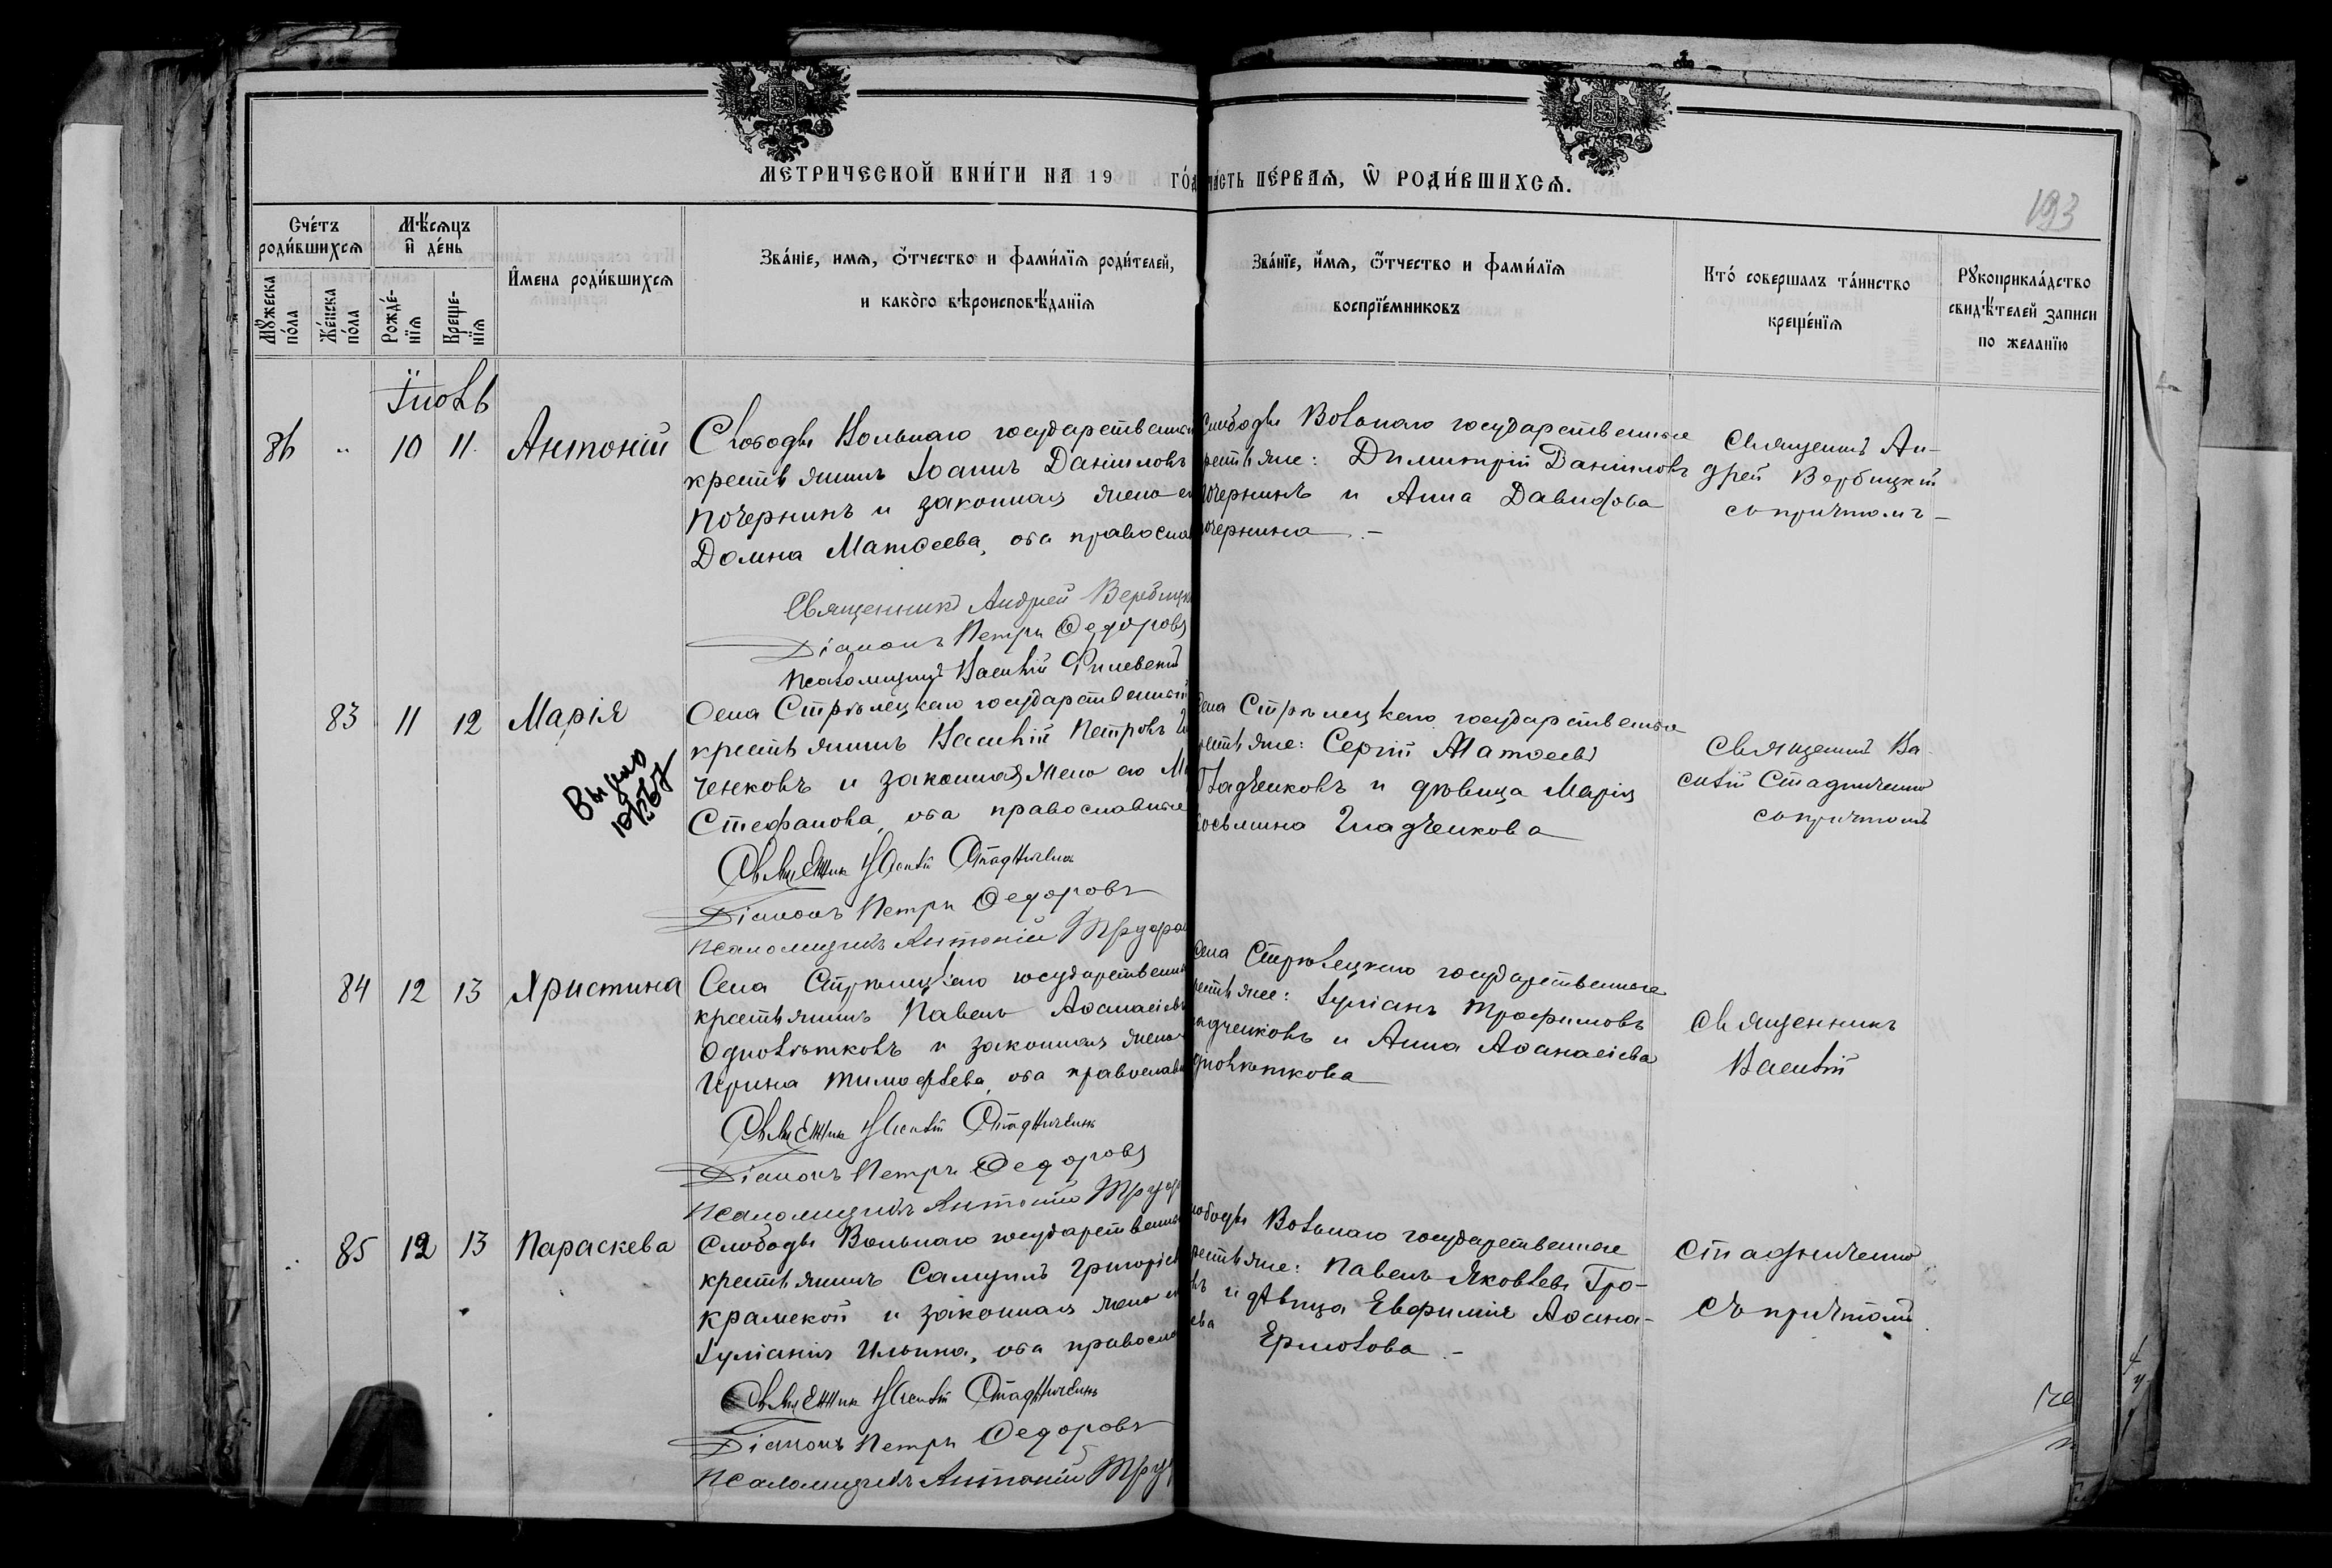 МЕТРИЧЕСКОЙ КНИ́ГИ НА 19 ГО́Д ЧА́СТЬ ПЕ́РВАѦ, Ѿ РОДИ́ВШИХСѦ.
193
Сче́тъ роди́вшихсѧ
Мꙋ́жеска по́ла
Же́нска по́ла
Мѣ́сѧцъ и҆ де́нь
Рожде́-нїѧ
Креще-нїѧ
И҆мена роди́вшихсѧ
Зва́нїе, имѧ, ѻ҆́тчество и фами́лїѧ роди́телей,
и како́го вѣроисповѣ́данїѧ
Зва́нїе, и҆́мѧ, ѻ҆́тчество и фами́лїѧ
воспрїе́мниковъ
Кто́ совершалъ та́инство
креще́нїѧ
Рꙋкоприкла́дство
свидѣ́телей записи
по желанїю
Іюль
86 " 10 11 Антоній
Слободы Вольнаго государственный
крестьянинъ Іоаннъ Даніиловъ
Почернинъ и законная жена ег
Домна Матѳеева, оба правосла
Слободы Вольнаго государственные
рестьяне: Димитрій Даніиловъ
Почернинъ и Анна Давидова
очернина. –
Священникъ Ан-
дрей Вербицкій
съ причтомъ –
Священникъ Андрей Вербицк
Діаконъ Петръ Федоровъ
Псаломщикъ Василій
83 11 12 Марія
Села Стрѣлецкаго государственный
крестьянинъ Василій Петровъ
ченковъ и законная жена его М
Стефанова, оба православные
Села Стрѣлецкаго государственные
рестьяне: Сергій Матѳеевъ
Гладченковъ и дѣвица Марія
Косьмина Гладченкова
Священникъ Ва-
силій Стадниченко
съ причтомъ
Священник Василій Стадниченко
Діаконъ Петръ Федоровъ
Псаломщикъ Антоній
84 12 13 Христина
Села Стрѣлецкаго государственный
крестьянинъ Павелъ Аѳанасіевъ
Однолѣтковъ и законная жена
Ирина Тимофѣева, оба православн
Села Стрѣлецкаго государственные
рестьяне: Іуліанъ Трофимовъ
адченковъ и Анна Аѳанасіева
днолѣткова
Священникъ
Василій
Священник Василій Стадниченко
Діаконъ Петръ Федоровъ
Псаломщикъ Антоній
85 12 13 Параскева
Слободы Вольнаго государственный
крестьянинъ Самуилъ Григоріев
Крамской и законная жена ег
Іуліанія Ильина, оба правосла
лободы Вольнаго государственные
рестьяне: Павелъ Яковлевъ Гро-
въ и дѣвица Евфимія Аѳана-
ева Ермолова. –
Стадниченко
съ причтомъ
Священник Василій Стадниченко
Діаконъ Петръ Федоровъ
Псаломщикъ Антоній